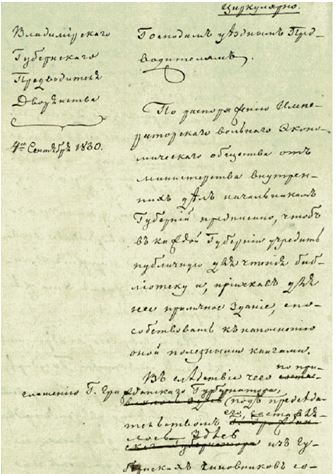 Циркулярно.
Владимірскаго
Губернскаго
Предводителя
Дворянства
4го Сентября 1830.
Господамъ уѣзднымъ Пред-
водителямъ.
По распоряженію Импе-
раторскаго вольнаго Эконо-
мическаго общества отъ
министерства внутрен-
нихъ дѣлъ начальникамъ
Губерній предписано, чтобъ
въ каждой Губерніи учредить
публичную для чтенія биб-
ліотеку и, пріискавъ для
нее приличное зданіе, спо-
собствовать къ наполненію
оной полезными книгами.
Въ слѣдствіе чего по при-
глашенію Г. Гражданскаго Губернатора,
подъ председа-
тельствомъ его,
изъ Гу-
чиновниковъ со-